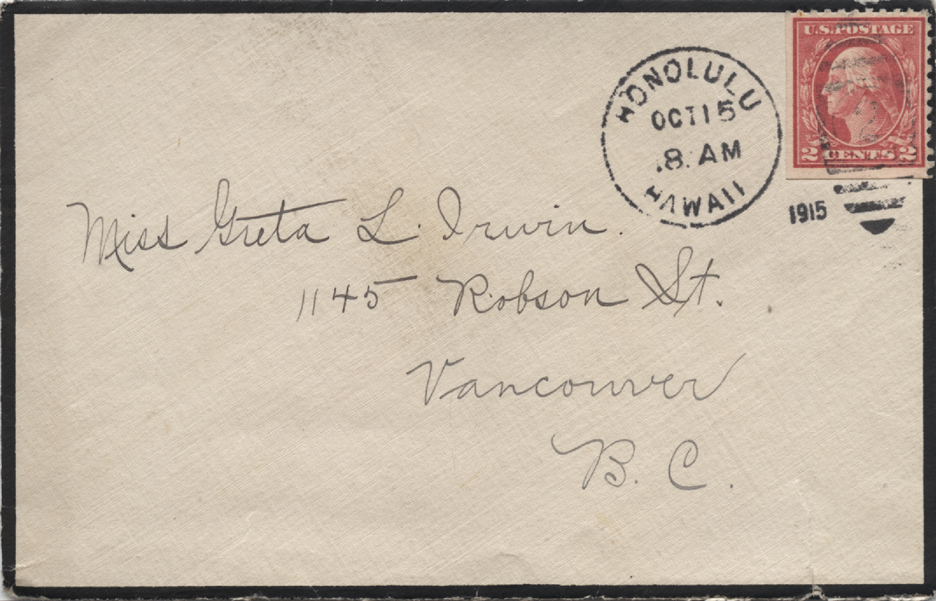 U.S. POSTAGE
2 CENTS 2
HONOLULU
OCT 15
8 AM
HAWAII
1915
Miss Greta L. Irwin.
1145 Robson St.
Vancouver
B. C.